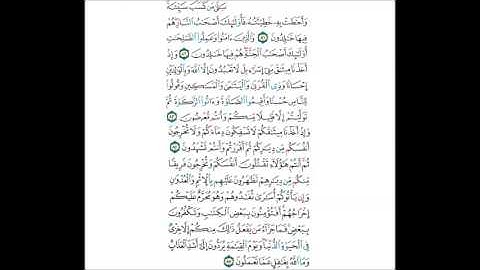 بَلَىٰ مَن كَسَبَ سَيِّئَةً
وَأَحَٰطَتْ بِهِۦ خَطِيٓـَٔتُهُۥ فَأُو۟لَٰٓئِكَ أَصْحَٰبُ ٱلنَّارِ هُمْ
فِيهَا خَٰلِدُونَ ٨١ وَٱلَّذِينَ ءَامَنُوا۟ وَعَمِلُوا۟ ٱلصَّٰلِحَٰتِ
أُو۟لَٰٓئِكَ أَصْحَٰبُ ٱلْجَنَّةِ هُمْ فِيهَا خَٰلِدُونَ ٨٢ وَإِذْ
أَخَذْنَا مِيثَٰقَ بَنِىٓ إِسْرَٰٓءِيلَ لَا تَعْبُدُونَ إِلَّا ٱللَّهَ وَبِٱلْوَٰلِدَيْنِ
إِحْسَانًا وَذِى ٱلْقُرْبَىٰ وَٱلْيَتَٰمَىٰ وَٱلْمَسَٰكِينِ وَقُولُوا۟
لِلنَّاسِ حُسْنًا وَأَقِيمُوا۟ ٱلصَّلَوٰةَ وَءَاتُوا۟ ٱلزَّكَوٰةَ ثُمَّ
تَوَلَّيْتُمْ إِلَّا قَلِيلًا مِّنكُمْ وَأَنتُم مُّعْرِضُونَ ٨٣
وَإِذْ أَخَذْنَا مِيثَٰقَكُمْ لَا تَسْفِكُونَ دِمَآءَكُمْ وَلَا تُخْرِجُونَ
أَنفُسَكُم مِّن دِيَٰرِكُمْ ثُمَّ أَقْرَرْتُمْ وَأَنتُمْ تَشْهَدُونَ ٨٤
ثُمَّ أَنتُمْ هَٰٓؤُلَآءِ تَقْتُلُونَ أَنفُسَكُمْ وَتُخْرِجُونَ فَرِيقًا
مِّنكُم مِّن دِيَٰرِهِمْ تَظَٰهَرُونَ عَلَيْهِم بِٱلْإِثْمِ وَٱلْعُدْوَٰنِ
وَإِن يَأْتُوكُمْ أُسَٰرَىٰ تُفَٰدُوهُمْ وَهُوَ مُحَرَّمٌ عَلَيْكُمْ
إِخْرَاجُهُمْ أَفَتُؤْمِنُونَ بِبَعْضِ ٱلْكِتَٰبِ وَتَكْفُرُونَ
بِبَعْضٍ فَمَا جَزَآءُ مَن يَفْعَلُ ذَٰلِكَ مِنكُمْ إِلَّا خِزْىٌ
فِى ٱلْحَيَوٰةِ ٱلدُّنْيَا وَيَوْمَ ٱلْقِيَٰمَةِ يُرَدُّونَ إِلَىٰٓ أَشَدِّ ٱلْعَذَابِ
وَمَا ٱللَّهُ بِغَٰفِلٍ عَمَّا تَعْمَلُونَ ٨٥